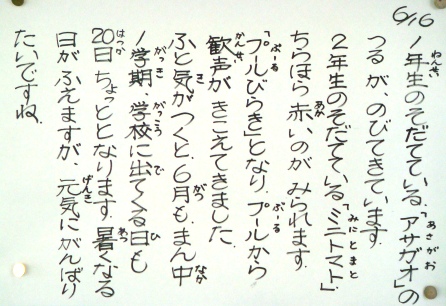 6/16
1年生のそだてている、「アサガオ」の
つるが、のびてきています。
2年生のそだてている「ミニトマト」
ちらほら赤いのがみられます。
「プールびらき」となり、プールから
歓声がきこえてきました。
ふと気がつくと、6月も、まん中
1学期、学校に出てくる日も
20日ちょっととなります。暑くなる
日がふえますが、元気にがんばり
たいですね。